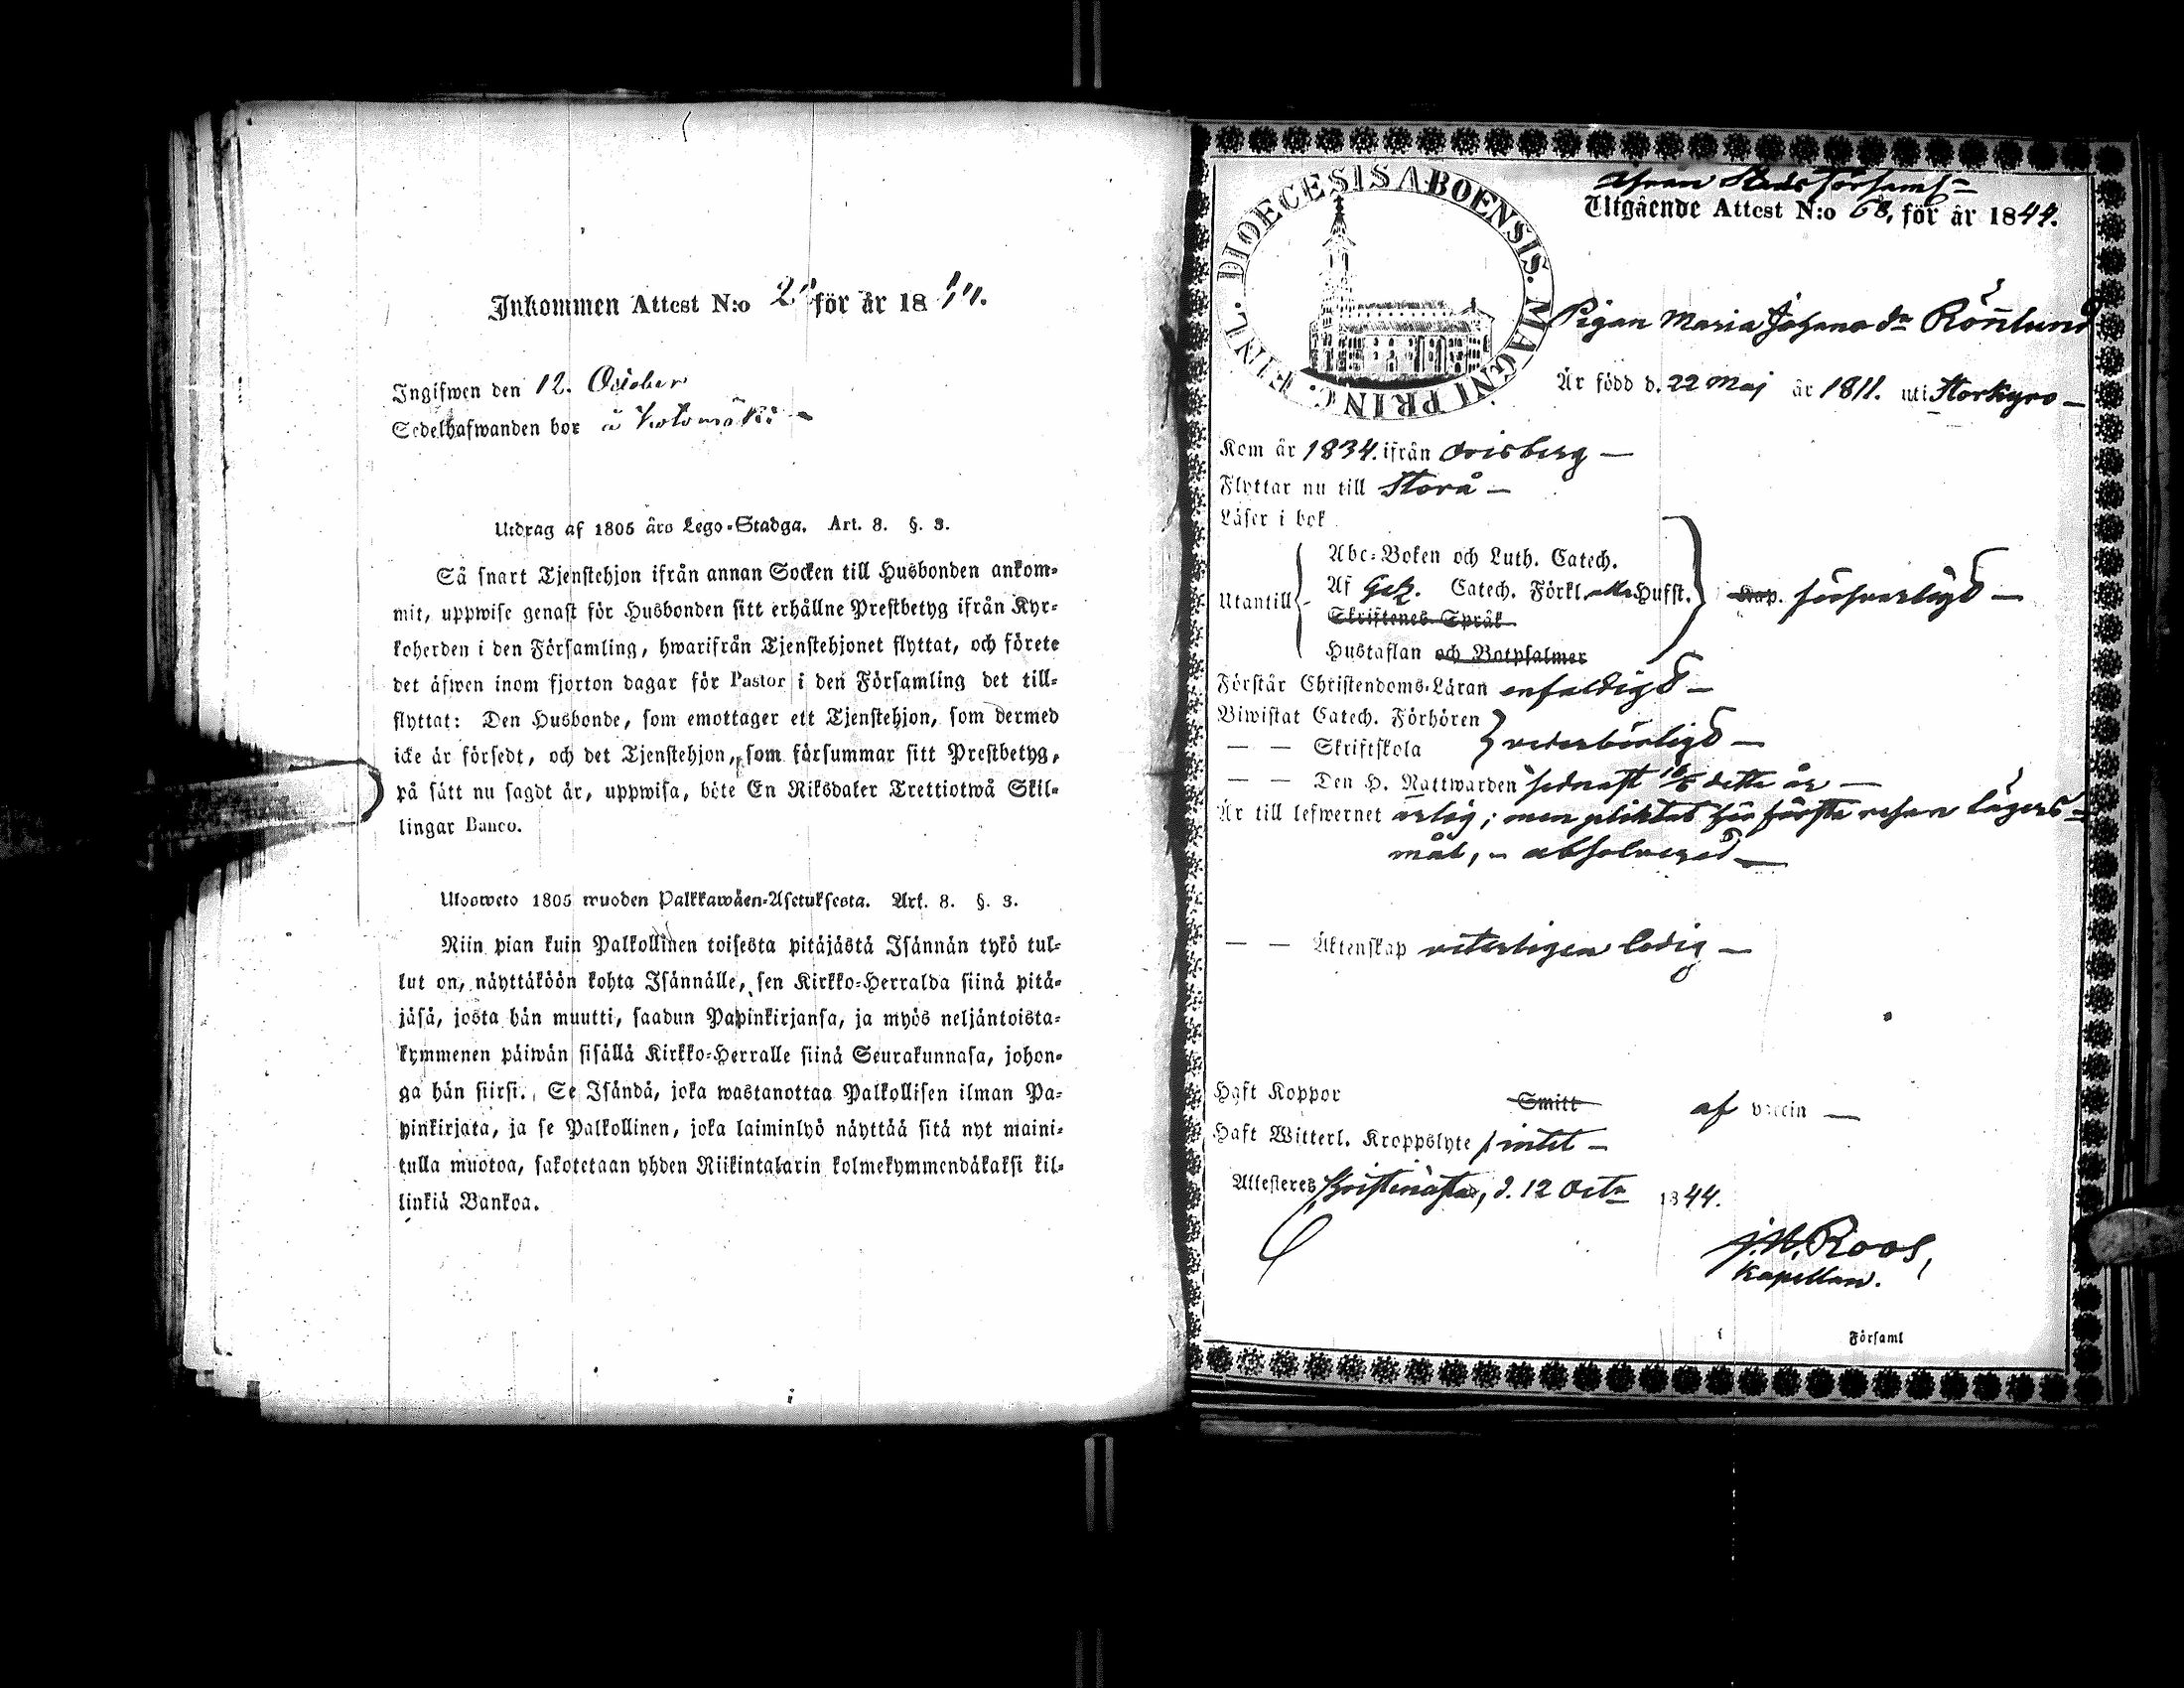 Inkommen Attest N:o för år 18
Ingifwen den 12. October
Sedelhafwanden bor å
Utdrag af 1805 års Lego-Stadga. Art. 8. §. 3.
Så snart Tjenstehjon ifrån annan Socken till Husbonden ankom-
mit, uppwise genast för Husbonden sitt erhållne Prestbetyg ifrån Kyr-
koherden i den Församling, hwarifrån Tjenstehjonet flyttat, och förete
det äfwen inom fjorton dagar för Pastor i den Församling det till-
flyttat: Den Husbonde, som emottager ett Tjenstehjon, som dermed
icke är försedt, och det Tjenstehjon, som försummar sitt Prestbetyg,
på sätt nu sagdt är, uppwisa, böte En Riksdaler Trettiotwå Skil-
lingar Banco.
Ulosweto 1805 wuoden Palkkawäen-Asetuksesta. Art. 8. §. 3.
Niin pian kuin Palkollinen toisesta pitäjästä Isännän tykö tul-
lut on, näyttäköön kohta Isännälle, sen Kirkko-Herralda siinä pitä-
jäsä, josta hän muutti, saadun Papinkirjansa, ja myös neljäntoista-
kymmenen päiwän sisällä Kirkko-Herralle siinä Seurakunnasa, johon-
ga hän siirsi. Se Isändä, joka wastanottaa Palkollisen ilman Pa-
pinkirjata, ja se Palkollinen, joka laiminlyö näyttää sitä nyt maini-
tulla muotoa, sakotetaan yhden Riikintalarin kolmekymmendäkaksi kil-
linkiä Bankoa.
FINL. DIOECESIS ABOENSIS. MAGNI PRINC.
ifrån Stads Församl-
Utgående Attest N:o 68, för år 1844.
Pigan Maria Johans dr Rönnlund
Är född d. 22 Maj år 1811. uti Storkyro -
Kom år 1834. ifrån Orisberg -
Flyttar nu till Storå -
Läser i bok
Utantill
Abc-Boken och Luth. Catech.
Af Gez. Catech. Förkl. Hufst.
Skriftenes Språk
Hustaflan och Botpsalmer
Kap. försvarligt -
Förstår Christendoms-Läran enfaldigt -
Biwistat Catech. Förhören
— — Skriftskola vederbörligt -
— — Den H. Nattwarden sednast detta år -
Är till lefwernet ärlig; men pliktat för första resan lägers-
mål, - absolverad -
— — Äktenskap veterligen ledig -
Haft Koppor Smitt af vaccin -
Haft Witterl. Kroppslyte intet -
Attesteres Kristinestad, d. 12 Octr 1844.
J. W. Roos,
Kapellan.
i Församl